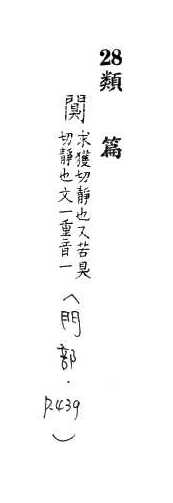 28類篇
闃
求獲切靜也又苦臭
切靜也文一重音一
（門部．P.439）